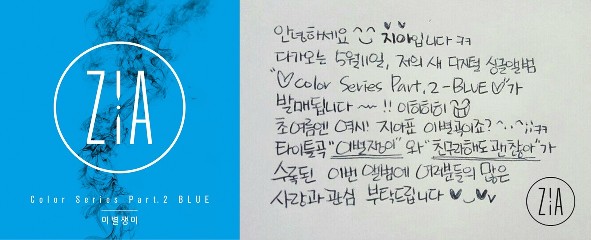 ZIA
Color Series Part.2 BLUE
이별쟁이
안녕하세요 ^^ 지아입니다 ㅋㅋ
다가오는 5월11일, 저의 새 디지털 싱글앨범
"♡Color Series Part.2-BLUE♡"가
발매됩니다~!! 이히히히
초여름엔 역시! 지아표 이별곡이죠? ^..^;;ㅋㅋ
타이틀곡 "이별쟁이" 와 "친구라해도 괜찮아"가
수록된 이번 앨범에 여러분들의 많은
사랑과 관심 부탁드립니다 ♥‿♥
ZIA